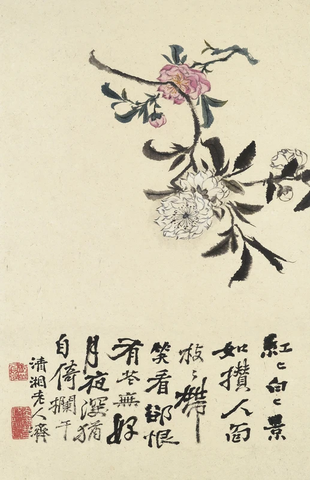 紅〻白〻景
如攢人面
枝〻帶
笑看郤恨
有花無好
月夜深猶
自倚欄干
清湘老人濟